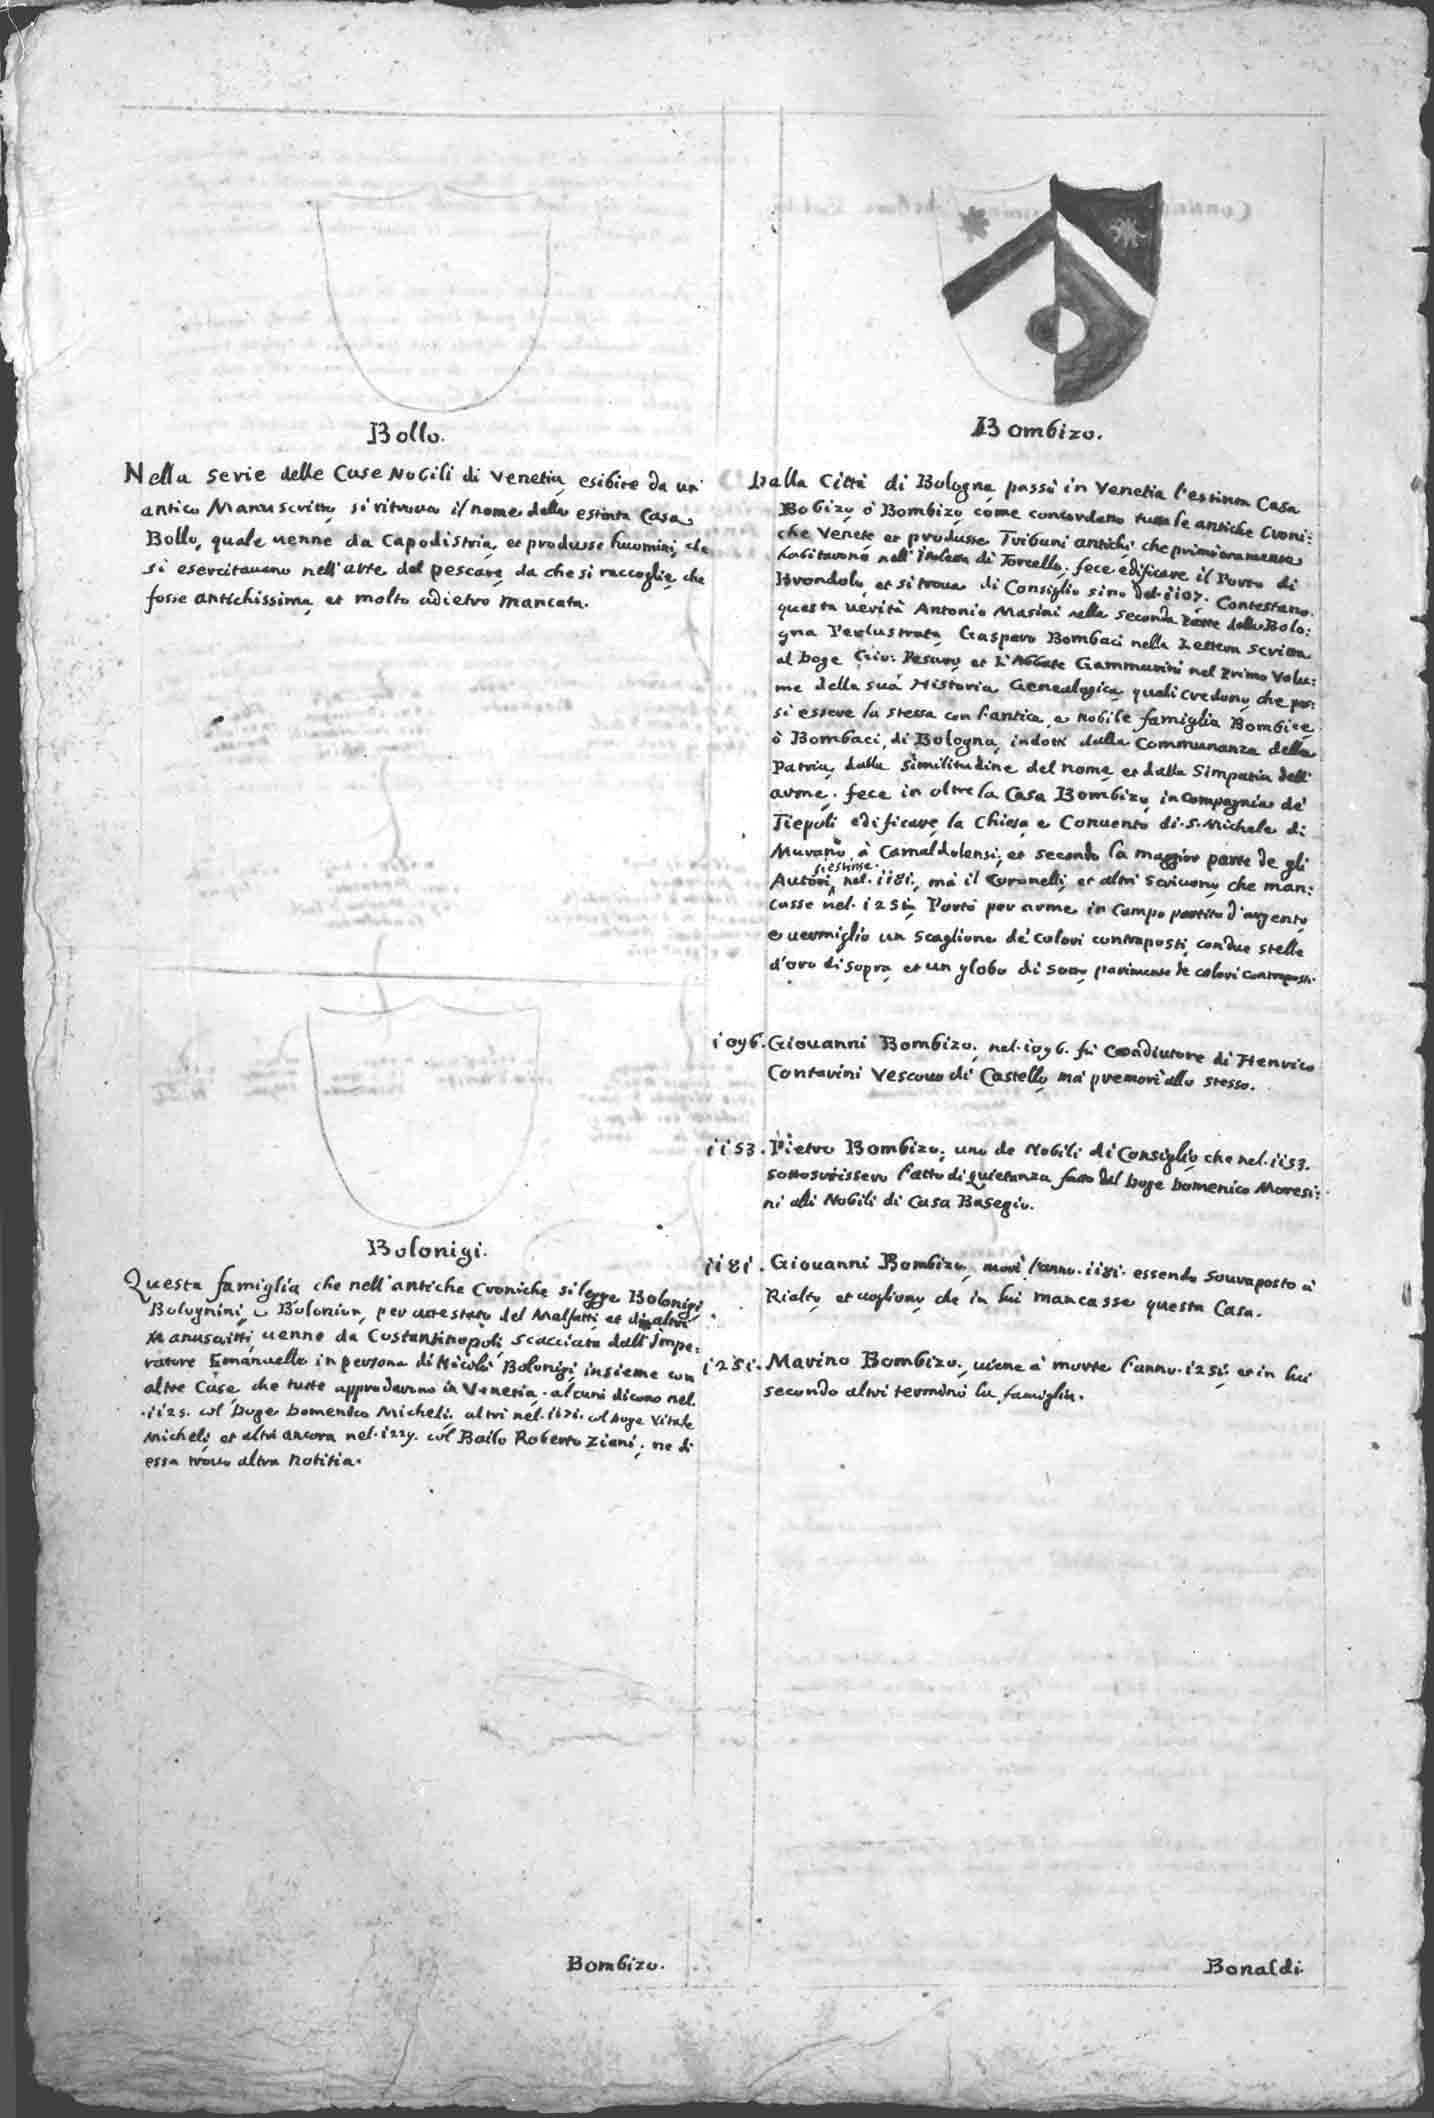 Bollo.
Nella serie delle Case Nobili di Venetia, esibite da un
antico Manuscritto, si ritrova il nome della estinta Casa
Bollo, quale uenne da Capodistria, et produsse huomini, che
si esercitauano nell'arte del pescare, da che si raccoglie, che
fosse antichissima, et molto adietro mancata.
Bolonigi.
Questa famiglia che nell'antiche Croniche si legge Bolonigi,
Bolognini, ò Bolonion, per attestato del Malfatti, et di altri
Manuscritti, uenne da Costantinopoli, scacciata dall'Impe:
ratore Emanuelle in persona di Nicolò Bolonigi, insieme con
altre Case, che tutte approdarono in Venetia. alcuni dicono nel.
.ii25. col Doge Domenico Micheli. altri nel. ii7i. col Doge Vitale
Micheli, et altri ancora nel. i229. col Bailo Roberto Ziani, ne di
essa trouo altra notitia.
Bombizo.
Bombizo.
Dalla Città di Bologna, passò in Venetia l'estinta Casa
Bobizo, ò Bombizo, come concordano tutte le antiche Croni:
che Venete et produsse Tribuni antichi, che primieramente
habitarono nell'Isoletta di Torcello, fece edificare il Porto di
Brondolo, et si troua di Consiglio sino del. ii07. Contestano
questa uerità Antonio Masini nella seconda Parte della Bolo:
gna Perlustrata, Gasparo Bombaci nella Lettera scritta
al Doge Gio: Pesaro, et l'Abbate Gammurini nel primo Volu:
me della sua Historia Genealogica, quali credono, che pos:
si essere la stessa con l'antica, e nobile famiglia Bombice
ò Bombaci, di Bologna, indotti dalla Communanza della
Patria, dalla similitudine del nome, et dalla Simpatia dell'
arme. fece in oltre la Casa Bombizo, in compagnia de'
Tiepoli edificare, la Chiesa e Conuento di. S. Michele di
Murano, à Camaldolensi, et secondo la maggior parte de gli
si estinse.
Autori, nel. ii8i., mà il Coronelli, et altri scriuono, che man:
casse nel. i25i. Portò per arme in campo partito d'argento,
e uermiglio un scaglione de' colori contraposti, con due stelle
d'oro di sopra, et un globo di sotto parimente de colori contraposti.
i096. Giouanni Bombizo, nel. i096. fù Coadiutore di Henrico
Contarini Vescouo di Castello, mà premorì allo stesso.
ii53. Pietro Bombizo, uno de Nobili di Consiglio che nel. ii53.
sottoscrissero l'atto di quietanza fatto dal Doge Domenico Moresi:
ni alli Nobili di Casa Basegio.
ii8i. Giouanni Bombizo, morì l'anno. ii8i. essendo Souraposto à
Rialto, et uogliono, che in lui mancasse questa Casa.
i25i. Marino Bombizo, uiene à morte l'anno. i25i, et in lui
secondo altri terminò la famiglia.
Bonaldi.